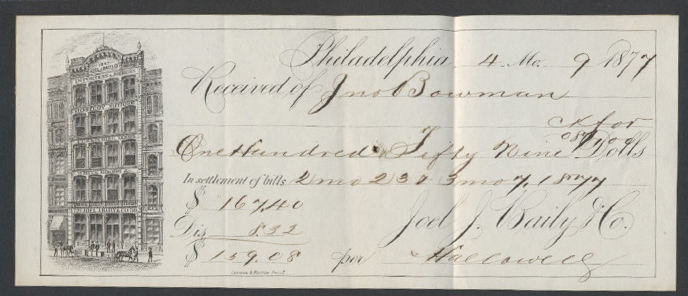 Philadelphia 4 Mo. 9 1877
Received of Jno Bowman
One Hundred & Fifty Nine 08/100 Dolls
In settlement of bills 2 mo 23 & 3 mo 7, 1877
$ 167.40
Dis 8.32
$ 159.08
Joel J. Baily & Co.
per Hallowell